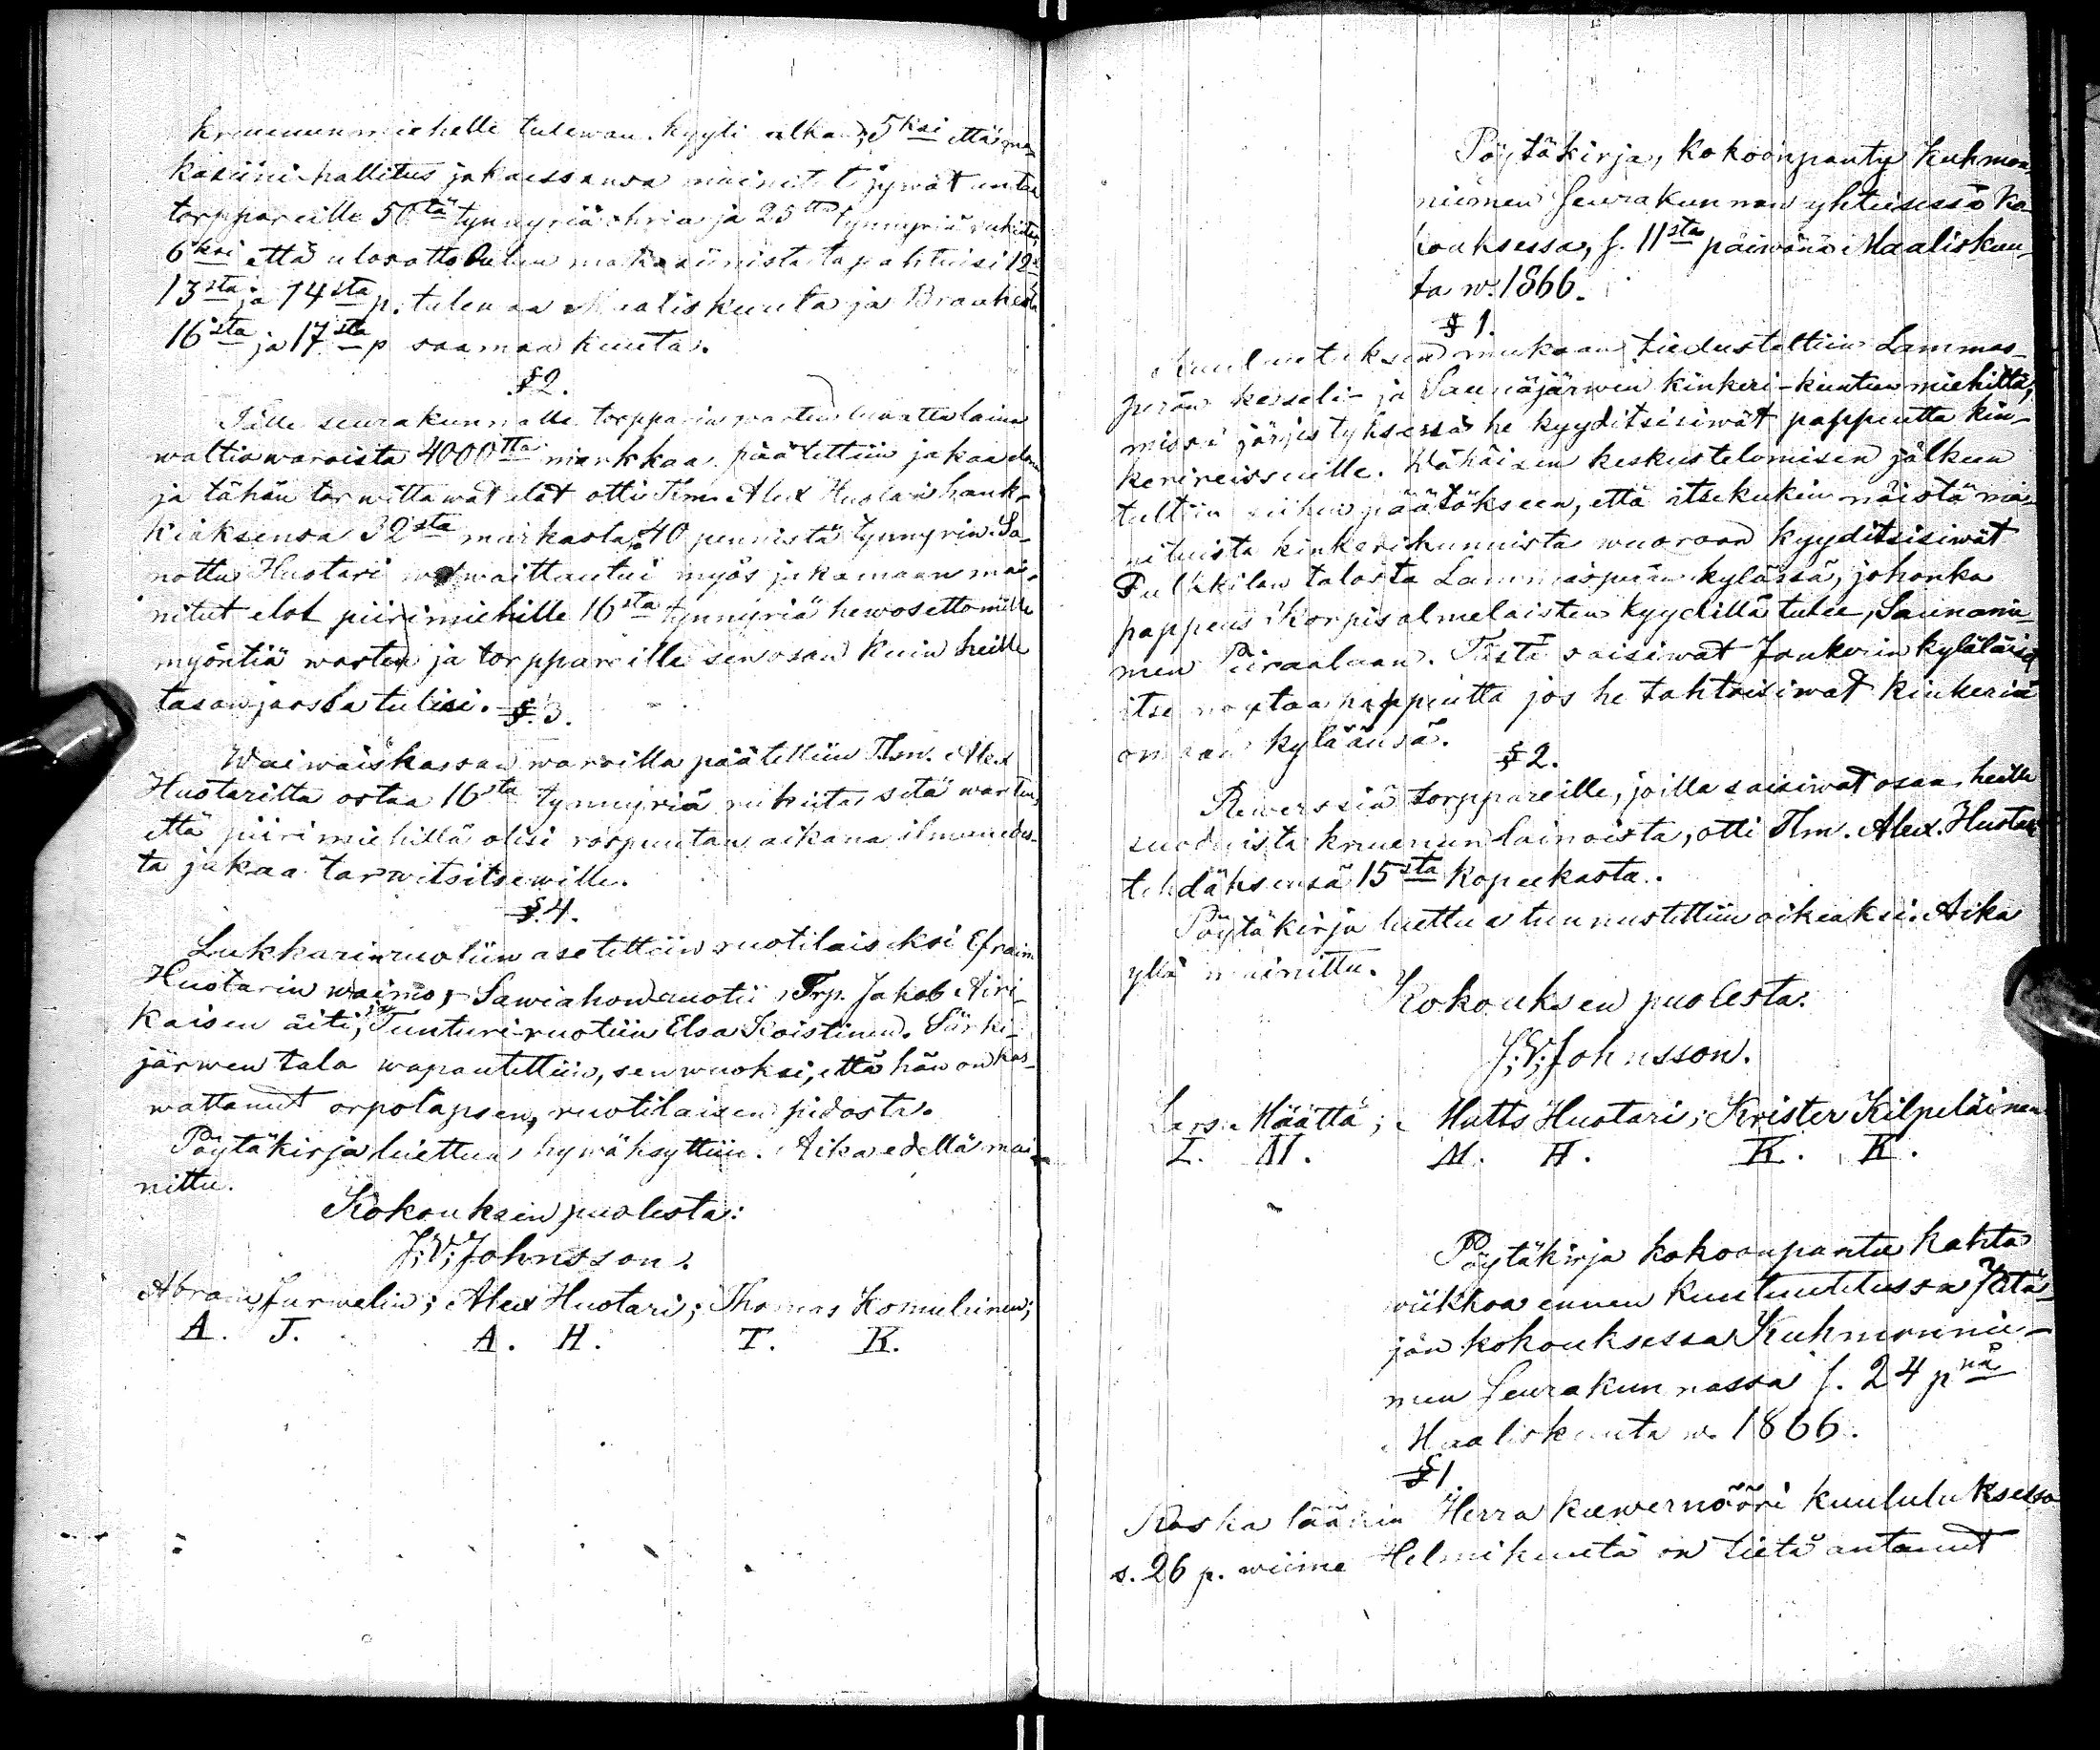 kruununmiehelle tulewan kyyti alkaa; 5ksi että ma-
kasiini-hallitus jakaessansa mainitut jywät antaa
torppareille 50tä tynnyriä ohria ja 25ttä tynnyriä rukiita,
6ksi että ulosotto Oulun makasiinista tapahtuisi 12s
13sta ja 14sta p. tulewaa Maaliskuuta ja Braahesta
16sta ja 17sta p saamaa kuuta.
§ 2.
Tälle seurakunnalle torpparien warten luwattu laina
waltiowaroista 4000tta markkaa päätettiin jakaa eloina
ja tähän tarwittawat elot otti Tlm. Alex Huotari hank-
kiaksensa 32sta markasta, 40 pennistä tynnyrin. Sa-
nottu Huotari waiwaittautui myös jakamaan mai-
nitut elot piirimiehille 16sta tynnyriä hewosettomille
myöntiä warten ja torppareille sen osan kuin heille
tasan jaosta tulisi.
§. 3.
Waiwaiskassan waroilla päätettiin Tlm. Alex
Huotarilta ostaa 16sta tynnyriä rukiita sitä warten,
että piirimiehillä olisi rospuutan aikana ilman edes-
ta jakaa tarwitsitsewille.
§. 4.
Lukkarinruotiin asetettiin ruotilaiseksi Efraim
Huotarin waimo, Sawiahon ruotii Trp. Jakob Airi-
kaisen äiti, ja Tunturi-ruotiin Elsa Koistinen. Särki-
järwen talo wapautettiin, sen wuoksi, että hän on kas-
wattanut orpolapsen, ruotilaisen pidosta.
Pöytäkirja luettua hywäksyttiin. Aika edellä mai-
nittu.
Kokouksen puolesta:
J;V;Johnsson.
Abram Jurwelin; Alex Huotari; Thomas Komulainen;
A. J. A. H. T. K.
Pöytäkirja, kokoonpantu Kuhmon-
niemen Seurakunnan yhteisessä Ko-
kouksessa, s. 11sta päiwänä Maaliskuu-
ta w. 1866.
§ 1.
Kuulutuksen mukaan tiedusteltiin Lammas-
perän keseli- ja Saunajärwen kinkeri-kuntien miehiltä,
missä järjestyksessä he kyyditsisiwät pappeutta kin-
kerireissuille. Wähäisen keskustelomisen jälkeen
tultiin siihen päätökseen, että itsekukin näistä mai-
nituista kinkerikunnista wuoroon kyyditsisiwät
Pulkkilan talosta Lammasperän kylässä, johonka
pappeus Korpisalmelaisten kyydillä tulee, Saunanie-
men Piiraalaan. Tästä saisiwat Jonkerin kyläläiset
itse noutaa pappeutta jos he tahtoisiwat kinkeriä
omaan kyläänsä.
§ 2.
Reverssiä torppareille, joilla saisiwat osaa heille
suoduista kruunun lainoista, otti Tlm. Alex. Huotari
tehdäksensä 15sta kopeekasta.
Pöytäkirja luettua tunnustettiin oikeaksi. Aika
yllä mainittu.
Kokouksen puolesta.
J;V;Johnsson.
Lars Määttä; Matts Huotari; Krister Kilpeläinen
L. M. M. H. K. K.
Pöytäkirja kokoonpantu kahta
wiikkoa ennen kuulutetussa Pitä-
jän kokouksessa Kuhmonnie-
men Seurakunnassa s. 24 pnä
Maaliskuuta w. 1866.
§ 1.
Koska läänin Herra kuwernööri kuulutuksessa
s. 26 p. wiime Helmikuuta on tietä antanut